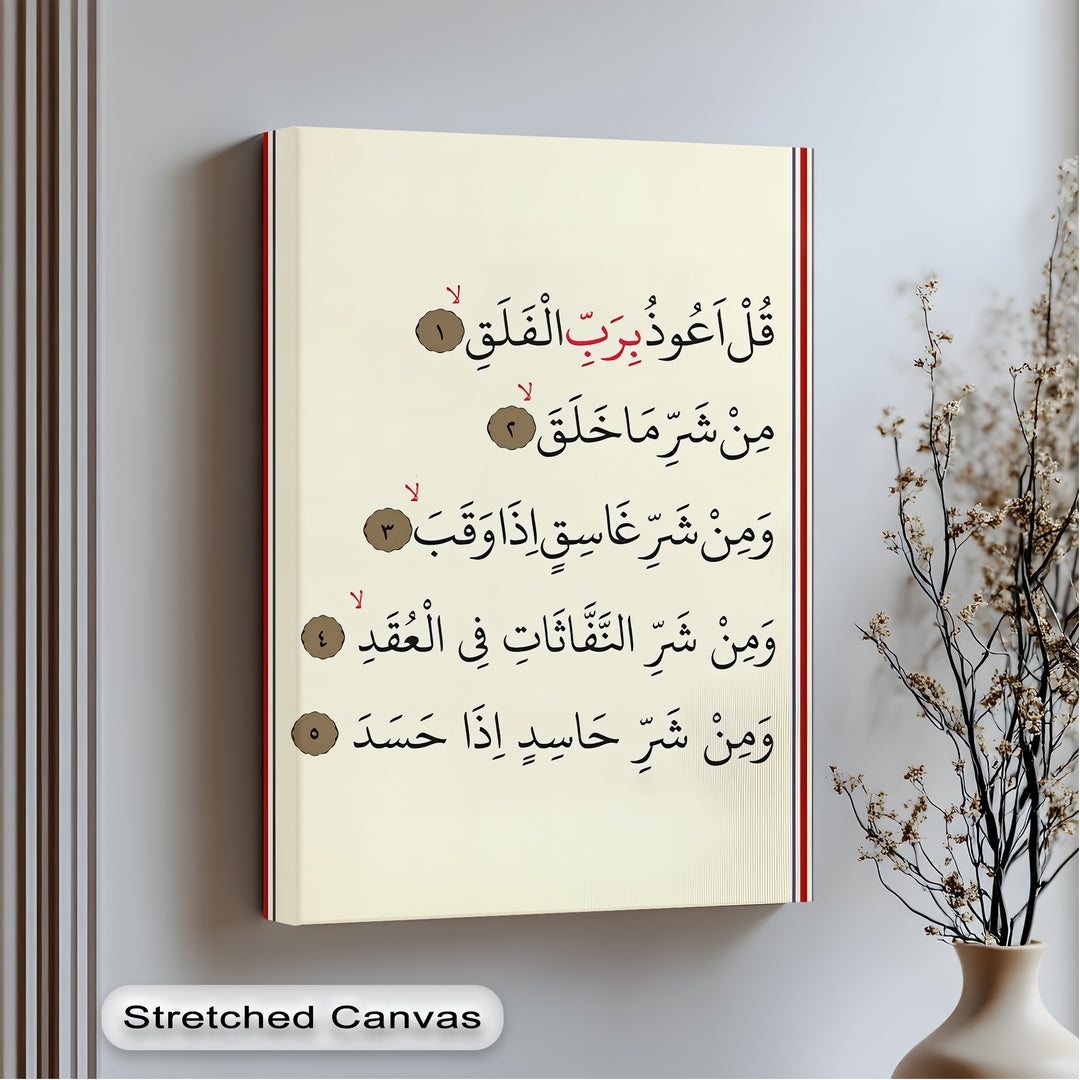 قُلْ اَعُوذُ بِرَبِّ الْفَلَقِۙ ١
مِنْ شَرِّ مَا خَلَقَۙ ٢
وَمِنْ شَرِّ غَاسِقٍ اِذَا وَقَبَۙ ٣
وَمِنْ شَرِّ النَّفَّاثَاتِ فِى الْعُقَدِۙ ٤
وَمِنْ شَرِّ حَاسِدٍ اِذَا حَسَدَ ٥
Stretched Canvas